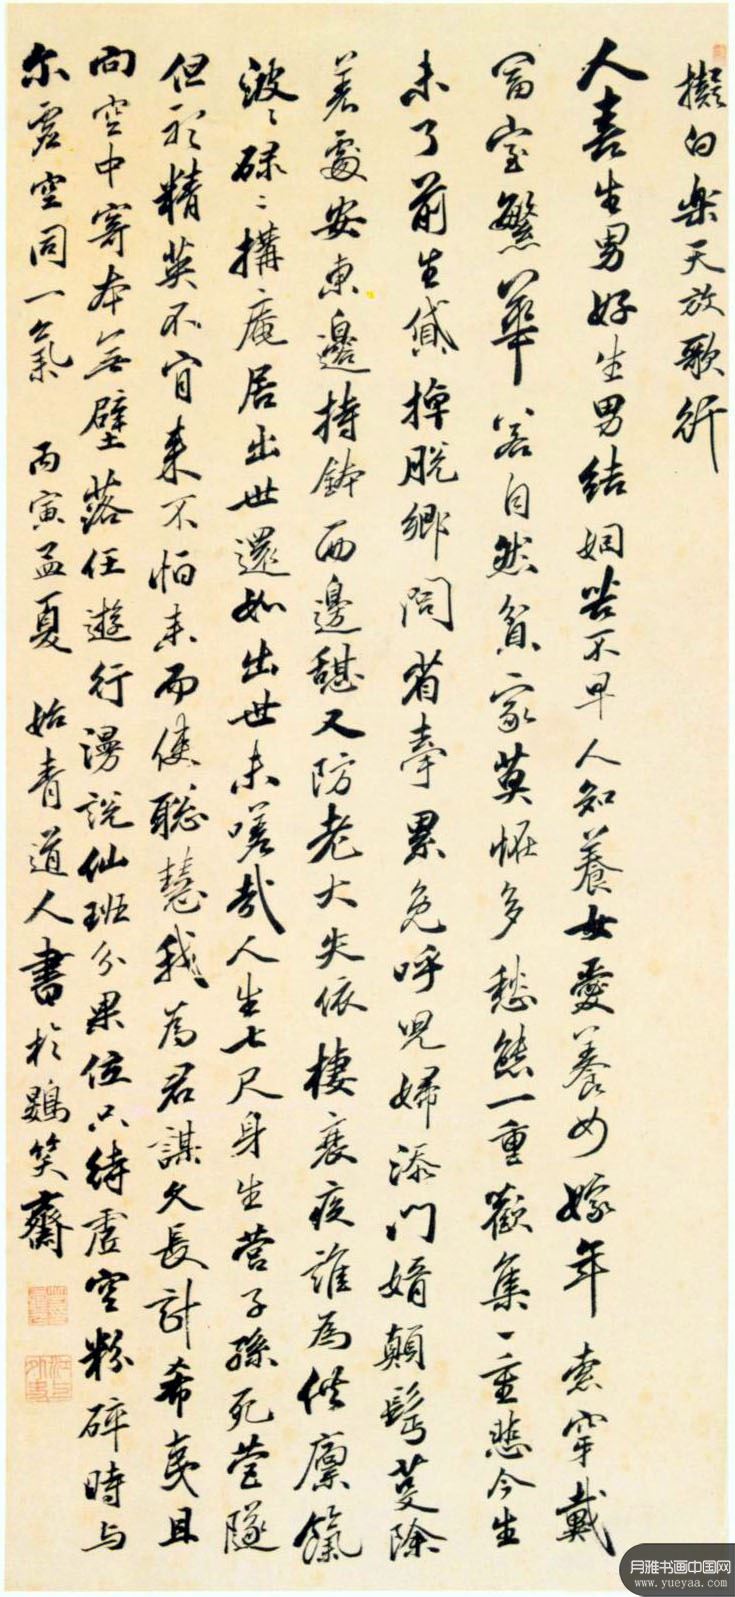 擬白樂天放歌行
人喜生男好生男結婣苦不早人知養女愛養女嫁年索穿戴
富室繁華若自然貧家莫怪多愁態一重歡集一重悲今生
未了前生貸掉脫鄉問省牽累免呼兒婦添門婿顛髩蔓除
著處安東邊持鉢西邊乂防老大失依棲衰疾誰為供廩餼
波〻碌〻搆庵居出世還如出世未嗟哉人生七尺身生營子孫死營隧
但形精英不宜来不怕未而使聡慧我為君謀久長計希夷且
向空中寄本無壁落任遊行漫說仙班分果位只待虛空粉碎時与
尔虛空同一氣 丙寅孟夏 始青道人書於鷃笑齋
月雅书画中国网
www.yueyaa.com